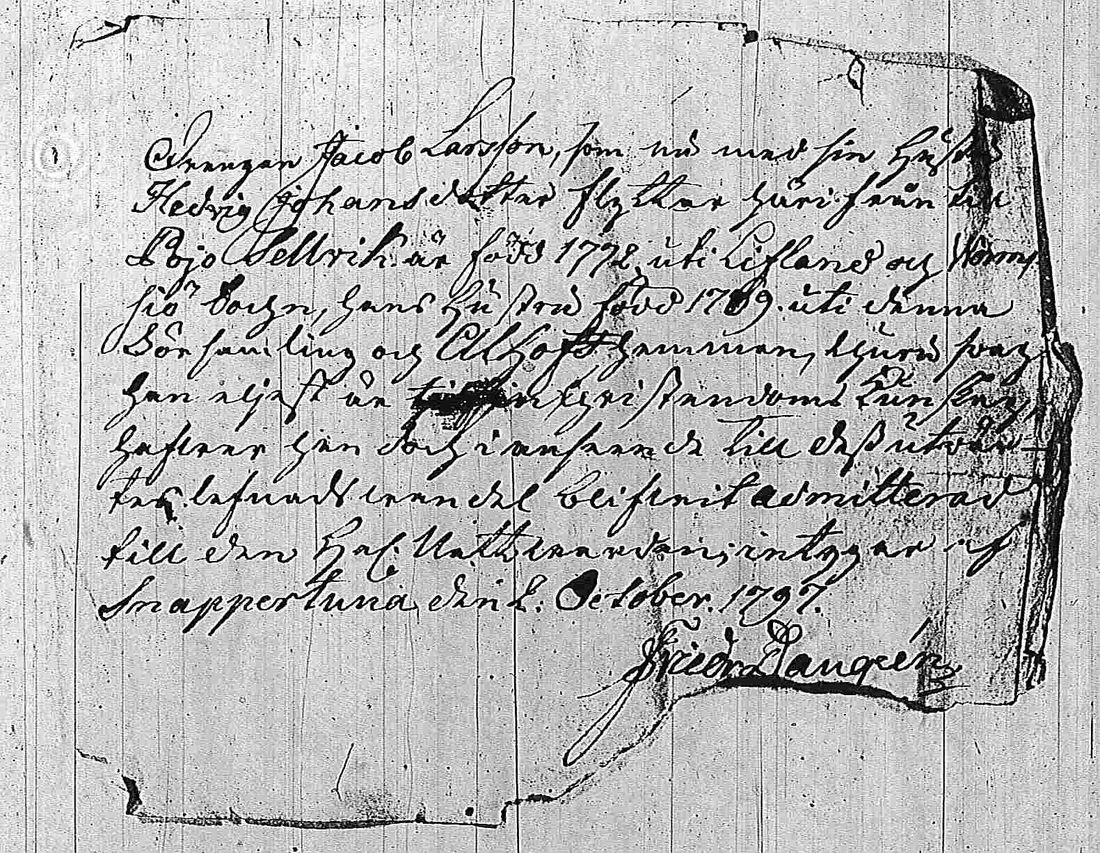 Drengen Jacob Larsson, som nu med sin Hustru
Hedvig Johansdotter flytter häri från till
Pojo Sellvik är född 1772 uti Lifland och
siö Sochn, hans Hustru född 1769. uti denna
Församling och hemman, huru svag
han eljest är in christendoms kunskap,
hafver han doch i anseende till dess utvär
tes lefnads wandel blifvit admitterad
till den Hel. Nattwarden; intygar af
Snappertuna den 2. October. 1797.
Friedr.